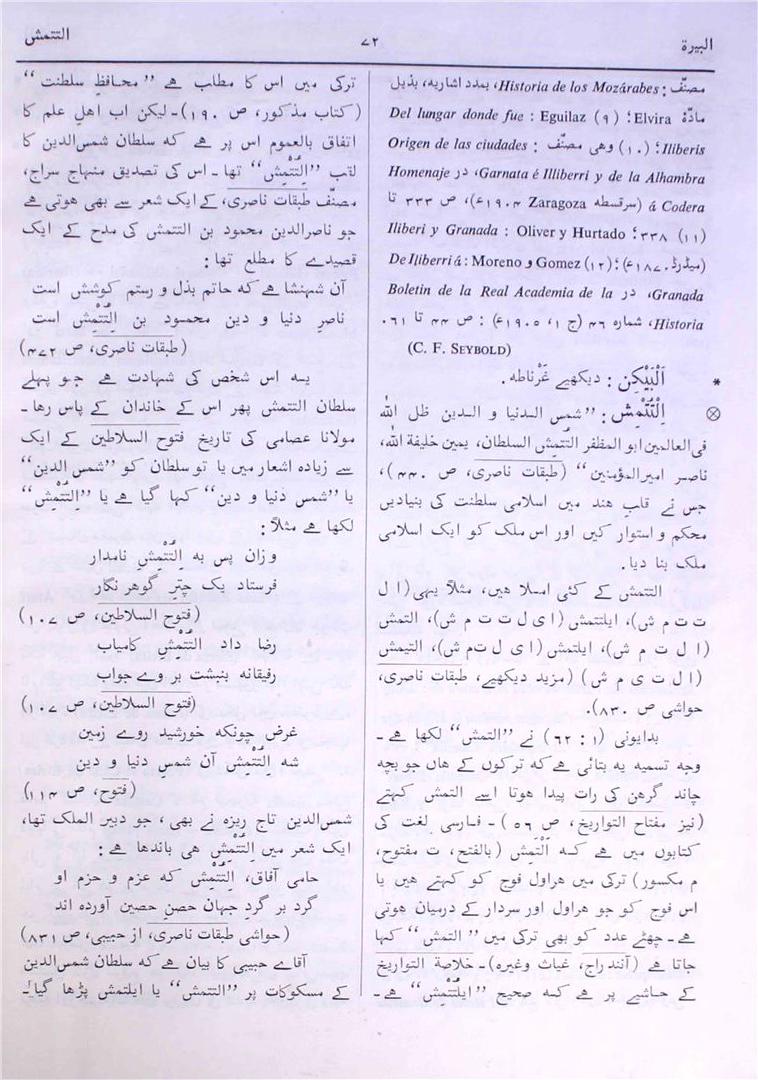 البيرة
٧٢
التتمش
مصنّف : Historia de los Mozárabes، بمدد اشاریه، بذیل
مادّهٔ Elvira؛ (٩) Eguilaz : Del lungar donde fue
Iliberis؛ (١٠) وهی مصنّف : Origen de las ciudades
Garnata é Illiberri y de la Alhambra، در Homenaje
á Codera (سرقسطه Zaragoza ١٩٠٤ء)، ص ٣٣٣ تا
٣٣٨؛ (١١) Oliver y Hurtado : Iliberi y Granada
(میڈرڈ ١٨٧٠ء)؛ (١٢) Gomez و Moreno : De Iliberri á
Granada، در Boletin de la Real Academia de la
Historia، شماره ٤٦ (ج ١، ١٩٠٥ء) : ص ٤٤ تا ٦١.
(C. F. SEYBOLD)
* اَلْبَيْكِن : دیکھیے غَرْناطه.
⊗ اِلْتُتْمِش : ”شمس الدنیا و الدین ظل اللہ
فی العالمین ابو المظفر التتمش السلطان، یمین خلیفة اللہ،
ناصر امیرالمؤمنین“ (طبقات ناصری، ص ٤٤٠)،
جس نے قلبِ ہند میں اسلامی سلطنت کی بنیادیں
محکم و استوار کیں اور اس ملک کو ایک اسلامی
ملک بنا دیا.
التتمش کے کئی املا ہیں، مثلاً یہی (ا ل
ت ت م ش)، ایلتتمش (ا ی ل ت ت م ش)، التمش
(ا ل ت م ش)، ایلتمش (ا ی ل ت م ش)، التیمش
(ا ل ت ی م ش) (مزید دیکھیے، طبقات ناصری،
حواشی ص ٨٣٠).
بدایونی (١ : ٦٢) نے ”التمش“ لکھا ہے ۔
وجہ تسمیہ یہ بتائی ہے کہ ترکوں کے ہاں جو بچہ
چاند گرہن کی رات پیدا ہوتا اسے التمش کہتے
(نیز مفتاح التواریخ، ص ٥٦) ۔ فارسی لغت کی
کتابوں میں ہے کہ اَلْتَمِش (بالفتح، ت مفتوح،
م مکسور) ترکی میں ہراول فوج کو کہتے ہیں یا
اس فوج کو جو ہراول اور سردار کے درمیان ہوتی
ہے۔ چھٹے عدد کو بھی ترکی میں ”التمش“ کہا
جاتا ہے (آنند راج، غیاث وغیرہ)۔ خلاصة التواریخ
کے حاشیے پر ہے کہ صحیح ”ایلتتمش“ ہے ۔
ترکی میں اس کا مطلب ہے ”محافظِ سلطنت“
(کتاب مذکور، ص ١٩٠)۔ لیکن اب اهلِ علم کا
اتفاق بالعموم اس پر ہے کہ سلطان شمس الدین کا
لقب ”اِلْتُتْمِش“ تھا۔ اس کی تصدیق منہاج سراج،
مصنّف طبقات ناصری، کے ایک شعر سے بھی ہوتی ہے
جو ناصرالدین محمود بن التتمش کی مدح کے ایک
قصیدے کا مطلع تھا :
آن شہنشا ہے کہ حاتم بذل و رستم کوشش است
ناصرِ دنیا و دین محمود بن اِلْتُتْمِش است
(طبقات ناصری، ص ٤٧٢)
یہ اس شخص کی شہادت ہے جو پہلے
سلطان التتمش پھر اس کے خاندان کے پاس رہا۔
مولانا عصامی کی تاریخ فتوح السلاطین کے ایک
سے زیادہ اشعار میں یا تو سلطان کو ”شمس الدین“
یا ”شمس دنیا و دین“ کہا گیا ہے یا ”اِلْتُتْمِش“
لکھا ہے مثلاً :
و زان پس بہ التتمش نامدار
فرستاد یک چترِ گوهر نگار
(فتوح السلاطین، ص ١٠٧)
رضا داد التتمش کامیاب
رفیقانہ بنیشت بر وے جواب
(فتوح السلاطین، ص ١٠٧)
غرض چونکہ خورشید روے زمین
شہ التتمش آن شمس دنیا و دین
(فتوح، ص ١١٤)
شمس الدین تاج ریزہ نے بھی، جو دبیر الملک تھا،
ایک شعر میں التتمش ہی باندها ہے :
حامی آفاق، اِلتتمش کہ عزم و حزم او
گرد بر گرد جہان حصنِ حصین آورده اند
(حواشی طبقات ناصری، از حبیبی، ص ٨٣١)
آقاے حبیبی کا بیان ہے کہ سلطان شمس الدین
کے مسکوکات پر ”التتمش“ یا ایلتمش پڑھا گیا۔